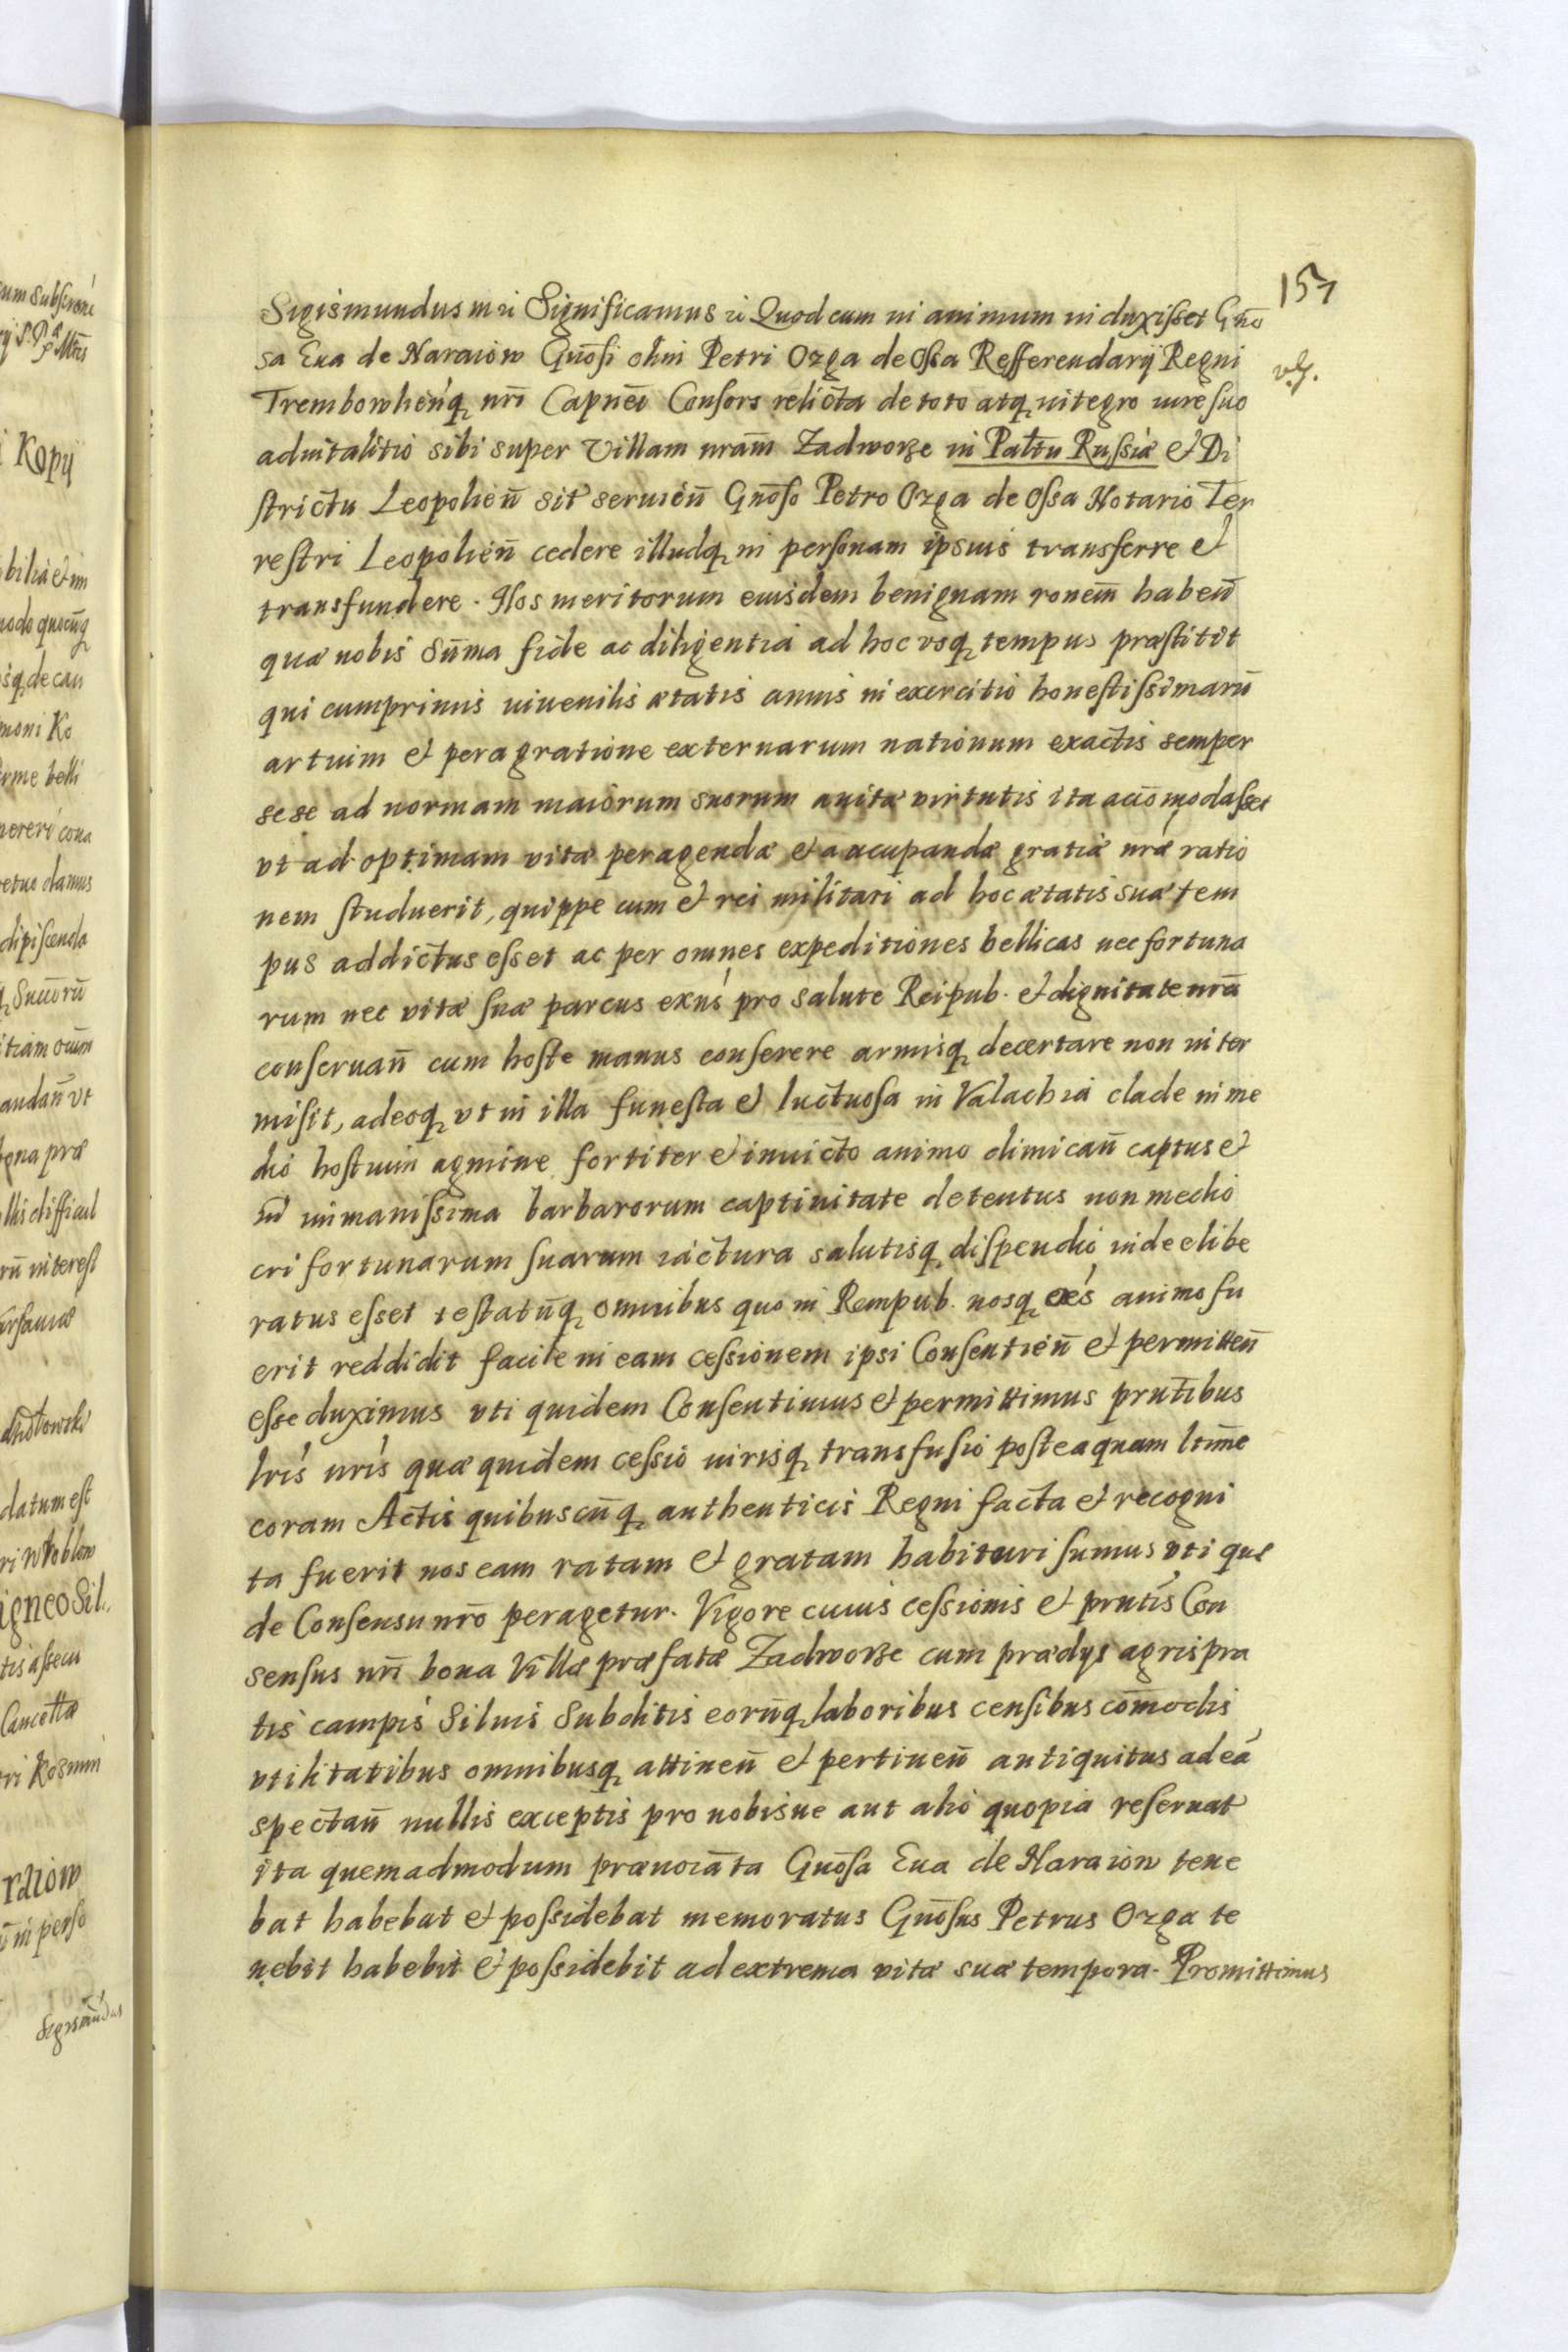 157
Sigismundus III etc Significamus etc Quod cum in animum induxisset Gño
sa Eua de Naraiow Gñosi olim Petri Ozga de Ossa Refferendarÿ Regni
Trembowlieńq, nrĩ Capneĩ Consors relicta de toto atq, integro iure suo
aduitalitio sibi super Villam nram̃ Zadworze in Paltũ Russiæ et Di
strictu Leopolieñ sit serujeñ Gñoso Petro Ozga de Ossa Notario Ter
restri Leopolieñ cedere illudq, in personam ipsius transferre et
transfundere. Nos meritorum eiusdem benignam ronem̃ habeñ
quæ nobis Sũma fide ac diligentia ad hoc vsq, tempus præstitit
qui cumprimis iuuenilis ætatis annis in exercitio honestissimarũ
artium et peragratione externarum nationum exactis semper
sese ad normam maiorum suorum auitæ virtutis ita accõmodasset
vt ad optimam vitæ peragendæ et aucupandæ gratiæ nræ ratio
nem studuerit, quippe cum et rei militari ad hoc ætatis suæ tem
pus addictus esset ac per omnes expeditiones bellicas nec fortuna
rum nec vitæ suæ parcus exñs pro salute Reipub. et dignitate nrã
conseruañ cum hoste manus conserere armisq, decertare non inter
misit, adeoq, vt in illa funesta et luctuosa in Valachia clade in me
dio hostium agmine fortiter et inuicto animo dimicañ captus et
in immanissima barbarorum captiuitate detentus non medio
cri fortunarum suarum iactura salutisq, dispendio inde elibe
ratus esset testatũq, omnibus quo in Rempub. nosq, oẽs animo fu
erit reddidit facile in eam cessionem ipsi Consentieñ et permitteñ
esse duximus vti quidem Consentimus et permittimus prntibus
lris nris quæ quidem cessio iurisq, transfusio posteaquam ltim̃e
coram Actis quibuscũq, authenticis Regni facta et recogni
ta fuerit nos eam ratam et gratam habituri sumus vti quæ
de Consensu nrõ peragetur. Vigore cuius cessionis et prntis Con
sensus nrĩ bona Villæ præfatæ Zadworze cum prædys agris pra
tis campis Siluis Subditis eorũq, laboribus censibus cõmodis
vtilitatibus omnibusq, attineñ et pertineñ antiquitus ad ea
spectañ nullis exceptis pro nobisue aut alio quopia reseruat
ita quemadmodum prænoiãta Gñosa Eua de Naraiow tene
bat habebat et possidebat memoratus Gñosus Petrus Ozga te
nebit habebit et possidebit ad extrema vitæ suæ tempora. Promittimus